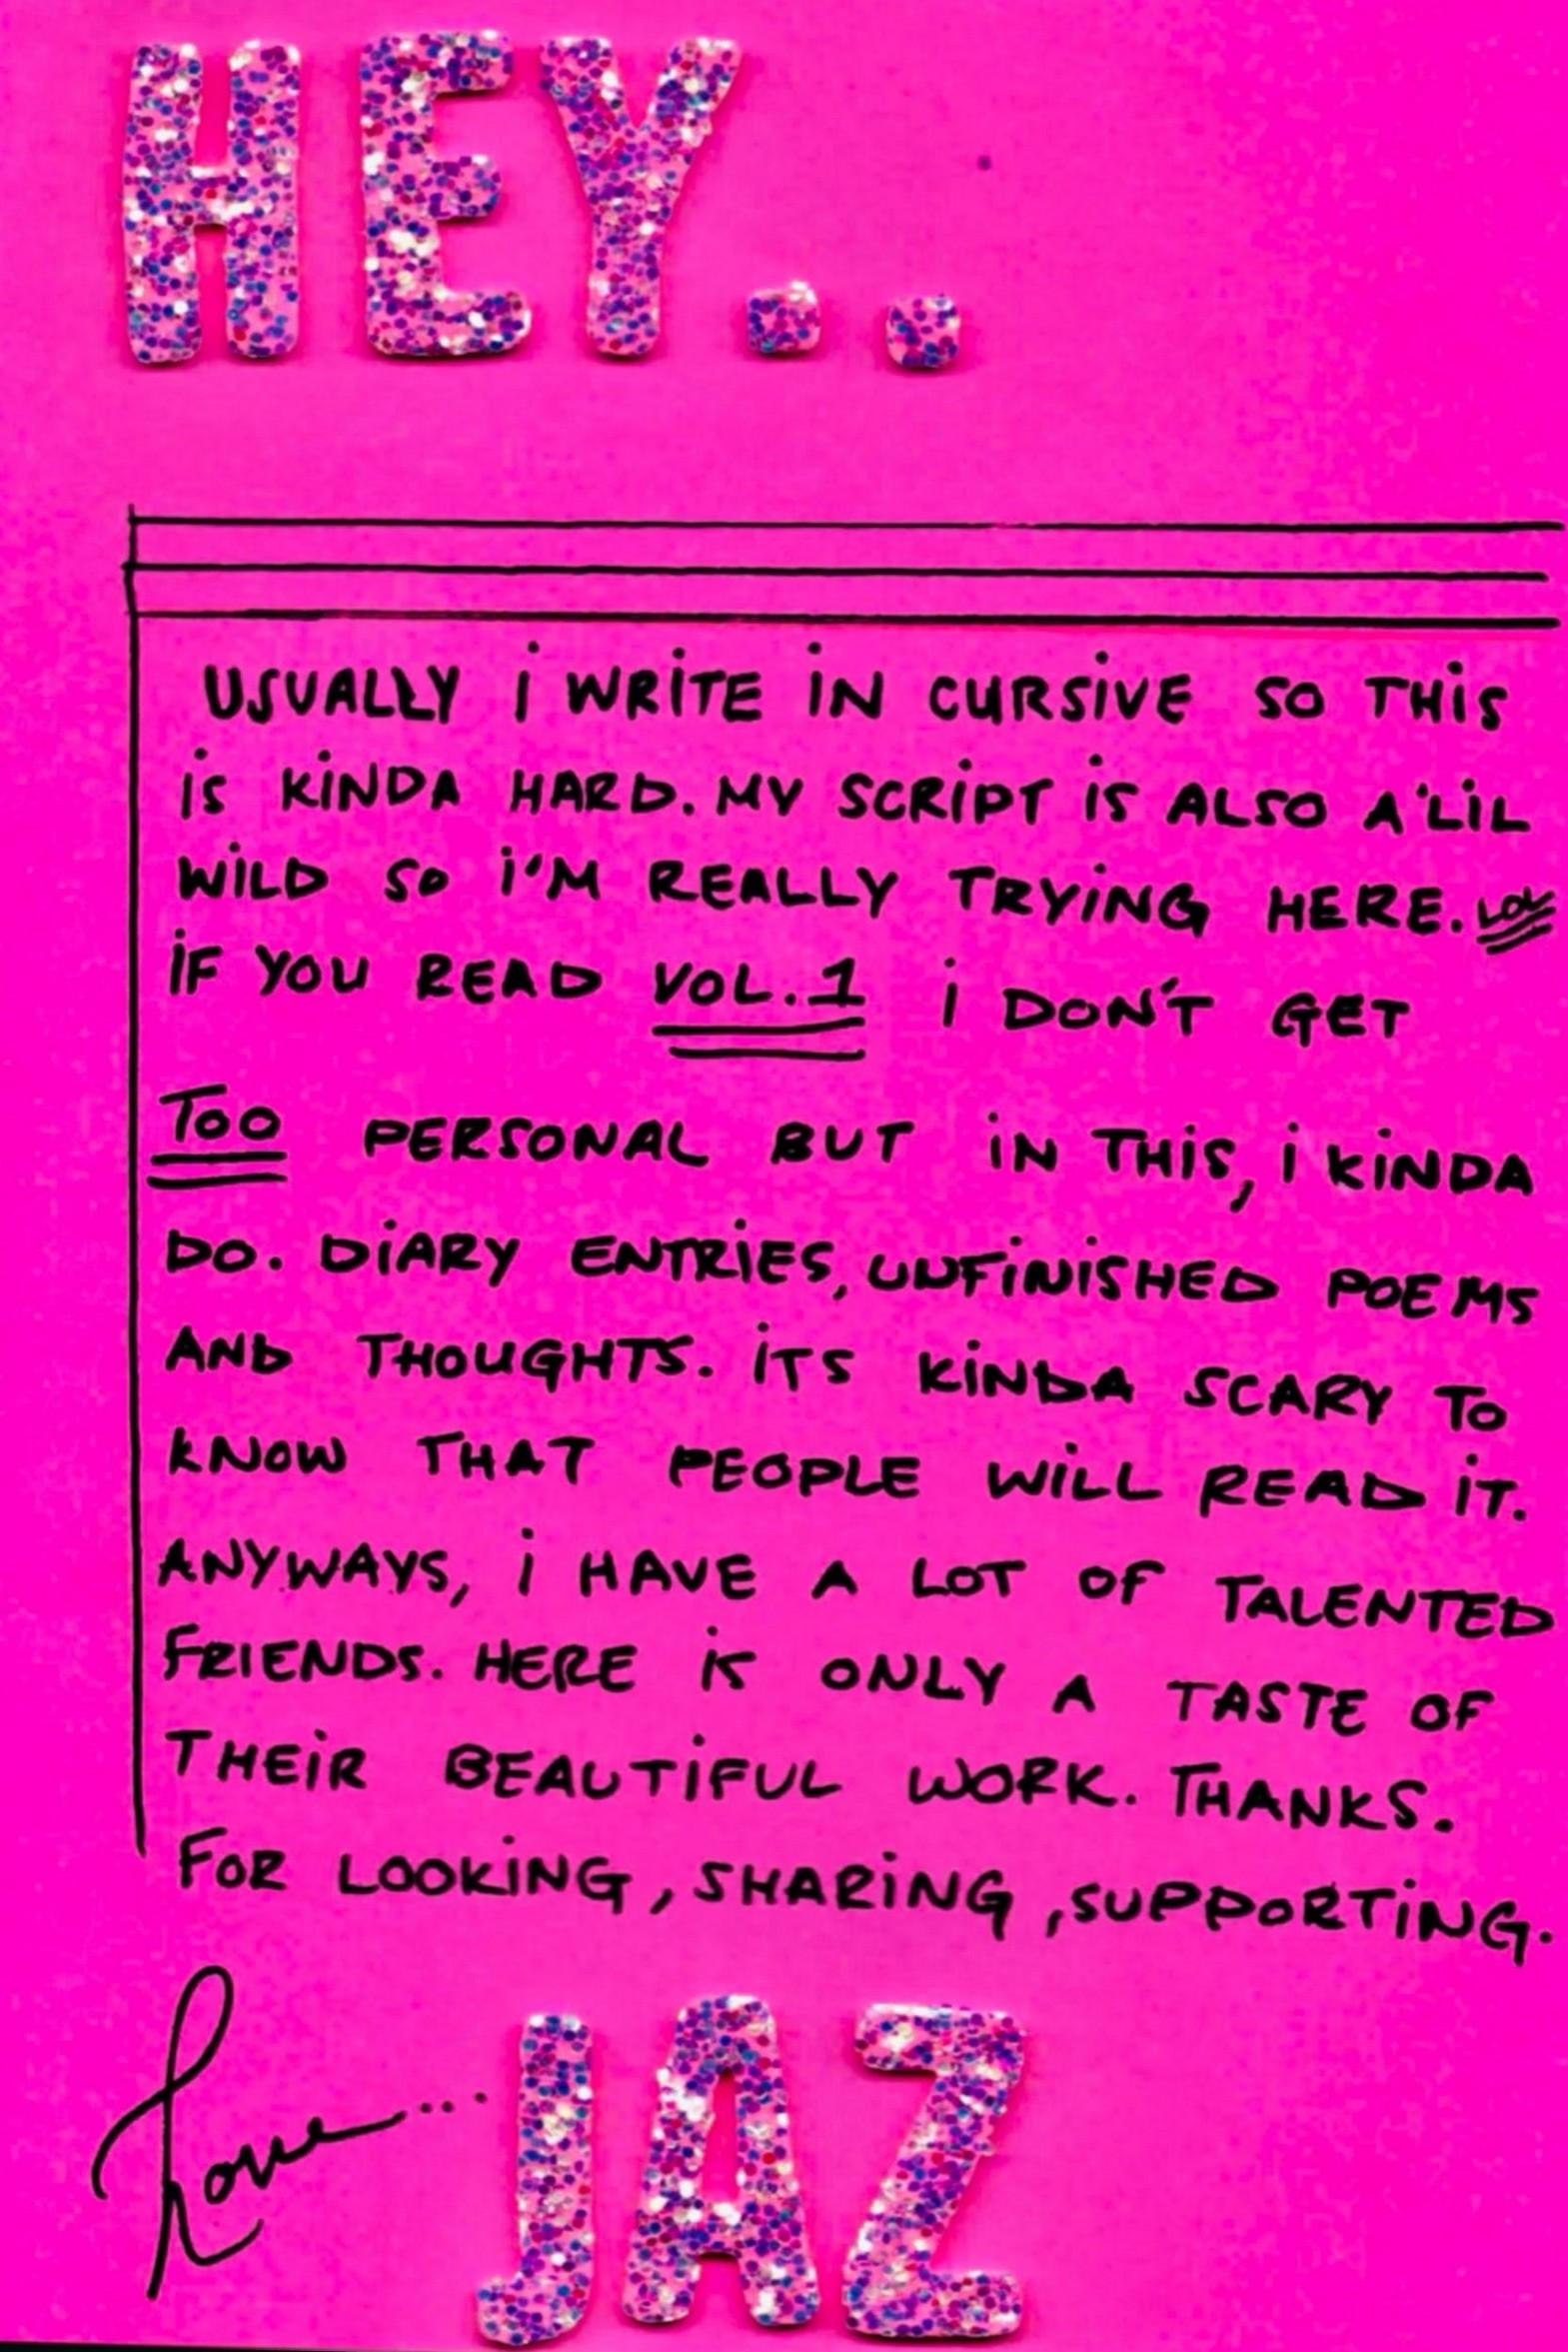 HEY..
USUALLY i WRiTE iN CURSiVE SO THiS
iS KiNDA HARD. MY SCRiPT iS ALSO A 'LiL
WiLD SO i'M REALLY TRYiNG HERE. LOL
iF YOU READ VOL.1 i DON'T GET
TOO PERSONAL BUT iN THiS, i KiNDA
DO. DiARY ENTRiES, UNFiNiSHED POEMS
AND THOUGHTS. iTS KiNDA SCARY TO
KNOW THAT PEOPLE WiLL READ iT.
ANYWAYS, i HAVE A LOT OF TALENTED
FRIENDS. HERE iS ONLY A TASTE OF
THEiR BEAUTiFUL WORK. THANKS.
FOR LOOKiNG, SHARiNG, SUPPORTiNG.
Love... JAZ